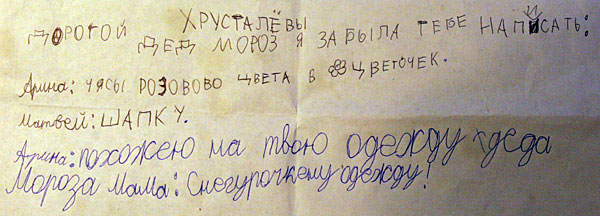 ХРУСТАЛЁВЫ
ДОРОГОЙ ДЕД МОРОЗ Я ЗАБЫЛА ТЕБЕ НАПИСАТЬ:
Арина: ЧЯСЫ РОЗОВОВО ЦВЕТА В ЦВЕТОЧЕК.
Матвей: ШАПКУ.
Арина: похожею на твою одежду деда
Мороза Мама: Снегурочкему одежду!